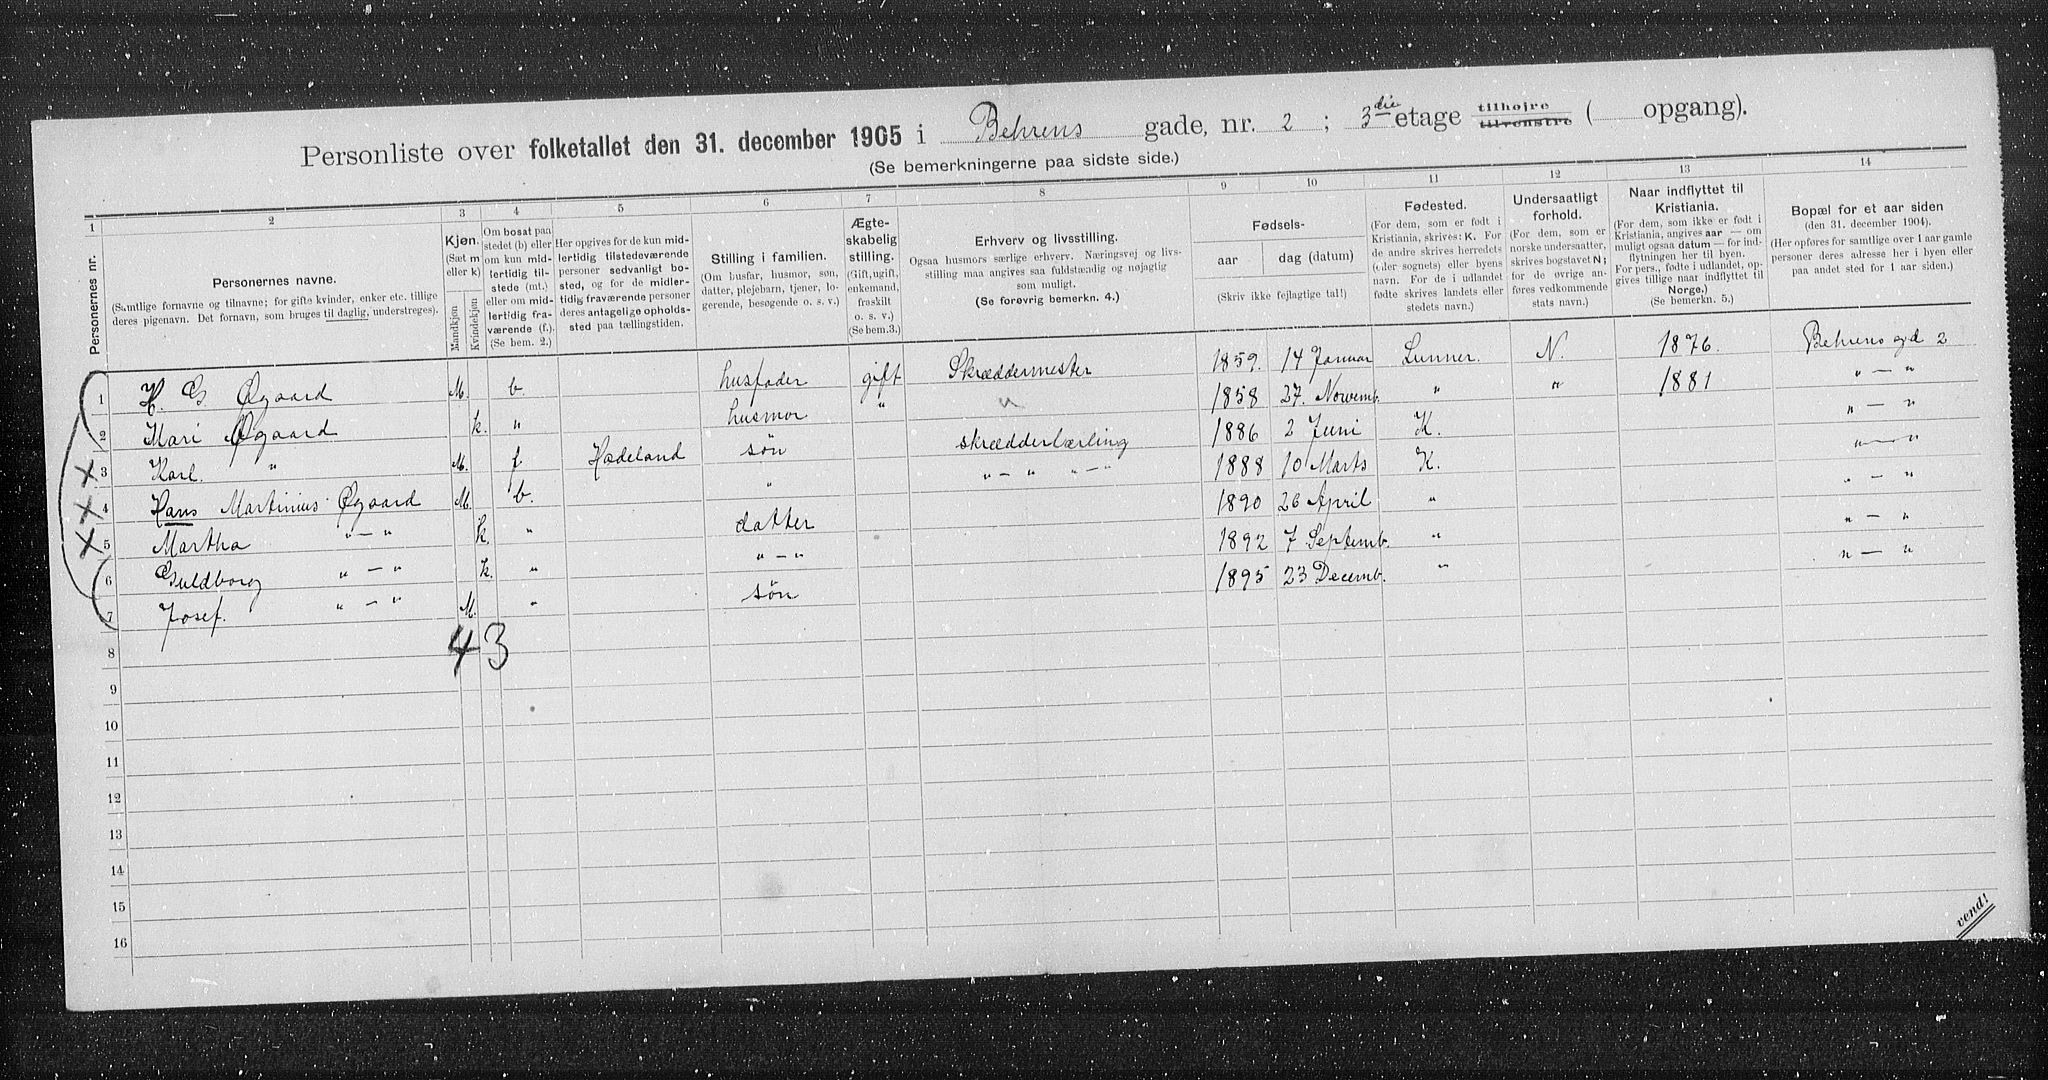 Personliste over folketallet den 31. december 1905 i Behrens gade, nr. 2 ; 3 die etage tilhøjre tilvenstre ( opgang).
(Se bemerkningerne paa sidste side.)
1 2 3 4 5 6 7 8 9 10 11 12 13 14
Personernes nr.
Personernes navne.
(Samtlige fornavne og tilnavne; for gifte kvinder, enker etc. tillige
deres pigenavn. Det fornavn, som bruges til daglig, understreges).
Kjøn.
(Sæt m
eller k)
Mandkjøn
Kvindekjøn
Om bosat paa
stedet (b) eller
om kun mid-
lertidig til-
stede (mt.)
eller om mid-
lertidig fra-
værende (f.)
(Se bem. 2.)
Her opgives for de kun mid-
lertidig tilstedeværende
personer sedvanligt bo-
sted, og for de midler-
tidig fraværende personer
deres antagelige opholds-
sted paa tællingstiden.
Stilling i familien.
(Om husfar, husmor, søn,
datter, plejebarn, tjener, lo-
gerende, besøgende o. s. v.)
Ægte-
skabelig
stilling.
(Gift, ugift,
enkemand,
fraskilt
o. s. v.)
(Se bem.3.)
Erhverv og livsstilling.
Ogsaa husmors særlige erhverv. Næringsvej og livs-
stilling maa angives saa fuldstændig og nøjagtig
som muligt.
(Se forøvrig bemerkn. 4.)
Fødsels-
aar
dag (datum)
(Skriv ikke fejlagtige tal!)
Fødested.
(For dem, som er født i
Kristiania, skrives: K. For
de andre skrives herredets
(eller sognets) eller byens
navn. For de i udlandet
fødte skrives landets eller
stedets navn.)
Undersaatligt
forhold.
(For dem, som er
norske undersaatter,
skrives bogstavet N;
for de øvrige an-
føres vedkommende
stats navn.)
Naar indflyttet til
Kristiania.
(For dem, som ikke er født i
Kristiania, angives aar — om
muligt ogsaa datum — for ind-
flytningen her til byen.
For pers., fødte i udlandet, op-
gives tillige naar indflyttet til
Norge.)
(Se bemerkn. 5.)
Bopæl for et aar siden
(den 31. december 1904).
(Her opføres for samtlige over 1 aar gamle
personer deres adresse her i byen eller
paa andet sted for 1 aar siden.)
1 H. G Øgaard M. b. husfader gift Skræddermester 1859. 14 Januar Lunner. N. 1876. Behrens gd 2
2 Mari Øgaard k. " husmor " " 1858 27. Novemb. " " 1881 " — "
3 Karl. " M. f Hadeland søn skrædderlærling 1886 2 Juni K. " — "
4 Hans Martinius Øgaard M. b. " " — " " — " 1888 10 Marts K. " — "
5 Martha " — " k. " datter 1890 26 April " " — "
6 Guldborg " — " k. " " — " 1892 7 Septemb. " " — "
7 Josef. " — " M. " søn 1895 23 Decemb. " " — "
8 4 3
9
10
11
12
13
14
15
16
vend!